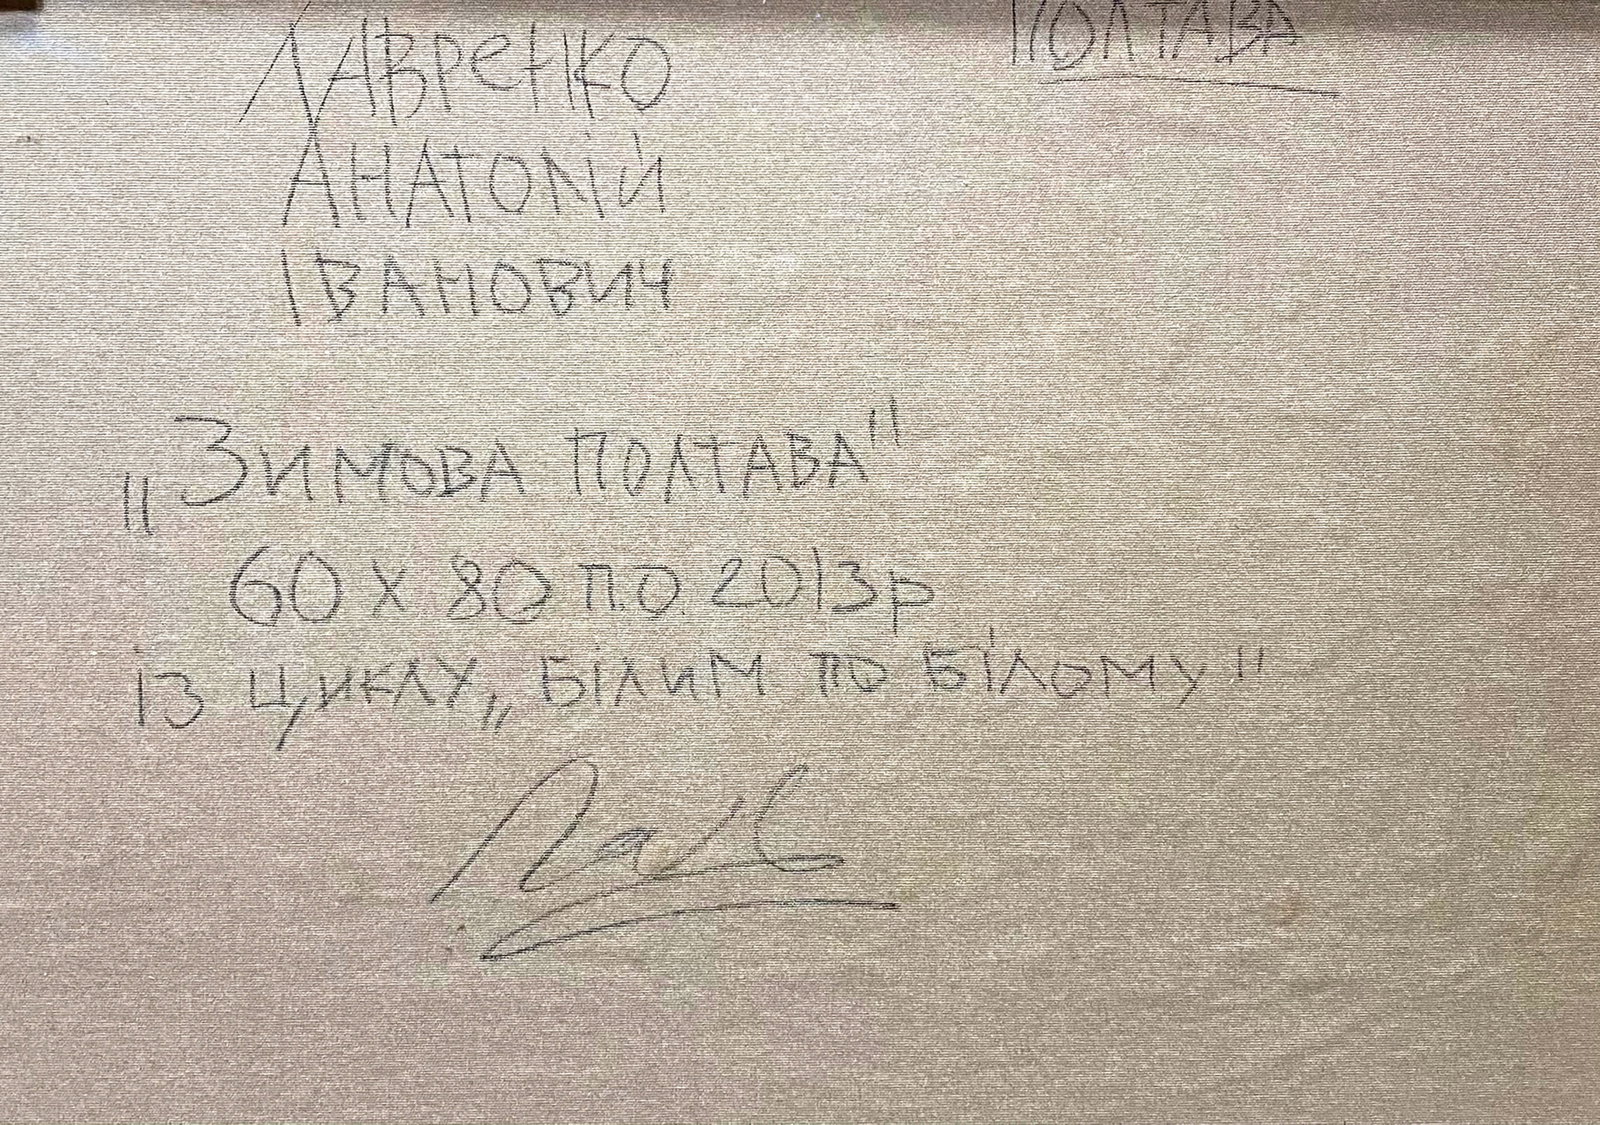 Лавренко
Полтава
Анатолій
Іванович
„Зимова Полтава"
60 х 80 п.о. 2013р
із циклу „Білим по білому"